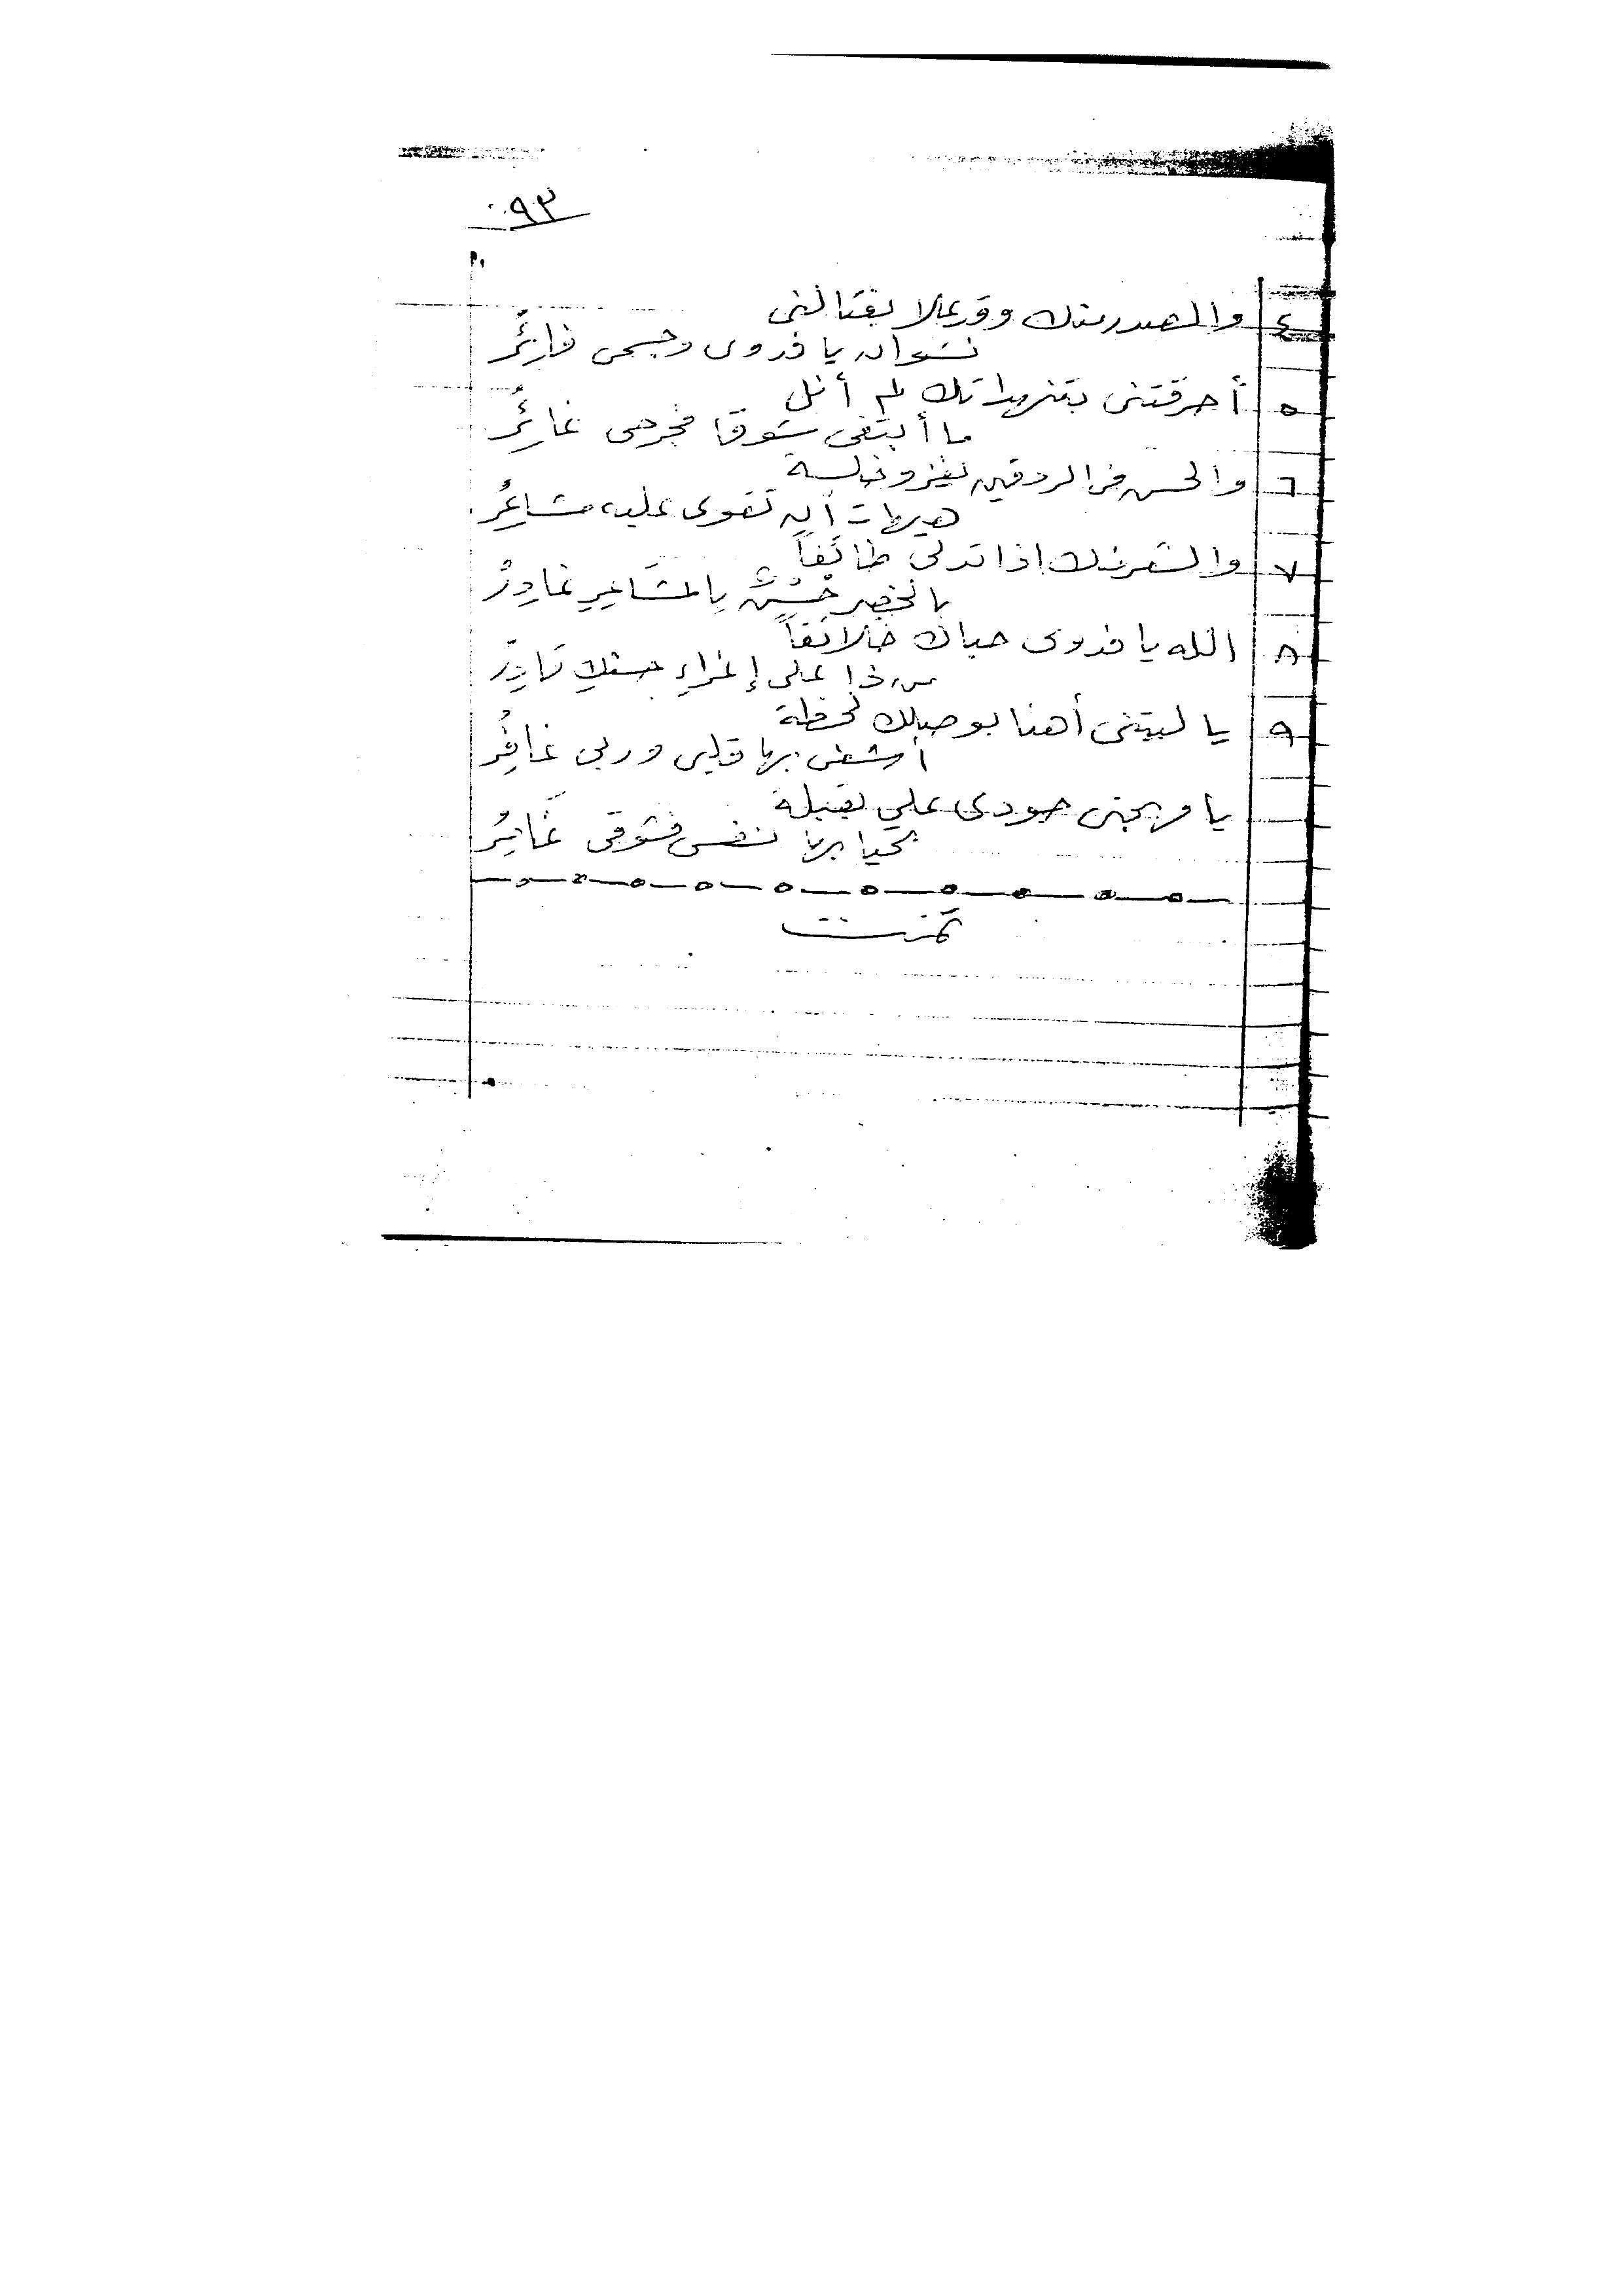 ٩٣
٤ والصدر منك وقد علا يغتالنى
نشوان يا فدوى وجسمى فائِرُ
٥ أحرقتنى بتنهداتك لم أنل
ما أبتغى شوقا فجرحى غائِرُ
٦ والحسن فى الردفين يغزو خلسة
هيهات أن تقوى عليه مشاعِرُ
٧ والشعر منك اذا تدلى طائفاً
بالخصر حُسْنٌ بالمشَاعِرِ غادِرُ
٨ الله يا فدوى حباك خلائقاً
من ذا على إغراءِ حسنكِ قادِرُ
٩ يا ليتنى أهنا بوصلك لحظة
أشفى بها قلبى وربى غافِرُ
يا مهجتى جودى علي بقبلة
تحيا بها نفسى فشوقى غَامِرُ
تمت